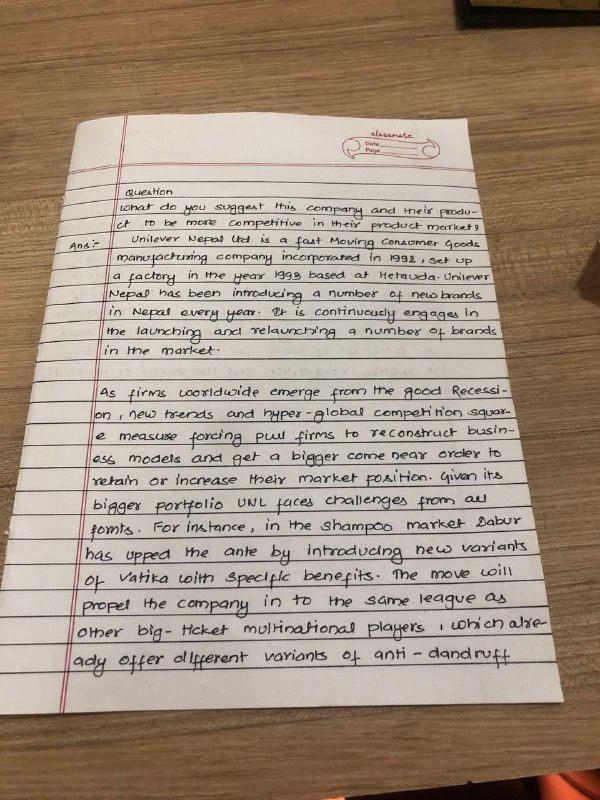 classmate
Date
Page
Question
what do you suggest this company and their produ-
ct to be more competitive in their product market?
Ans:- Unilever Nepal Ltd is a fast Moving Consumer Goods
manufacturing company incorporated in 1992, set up
a factory in the year 1993 based at Hetauda. Unilever
Nepal has been introducing a number of new brands
in Nepal every year. It is continuously engages in
the launching and relaunching a number of brands
in the market.
As firms worldwide emerge from the good Recessi-
on, new trends and hyper-global competition squar-
e measure forcing pwl firms to reconstruct busin-
ess models and get a bigger come near order to
retain or increase their market position. Given its
bigger portfolio UNL faces challenges from all
fornts. For instance, in the shampoo market Dabur
has upped the ante by introducing new variants
of Vatika with specific benefits. The move will
propel the company in to the same league as
other big-ticket multinational players, which alre-
ady offer different variants of anti-dandruff